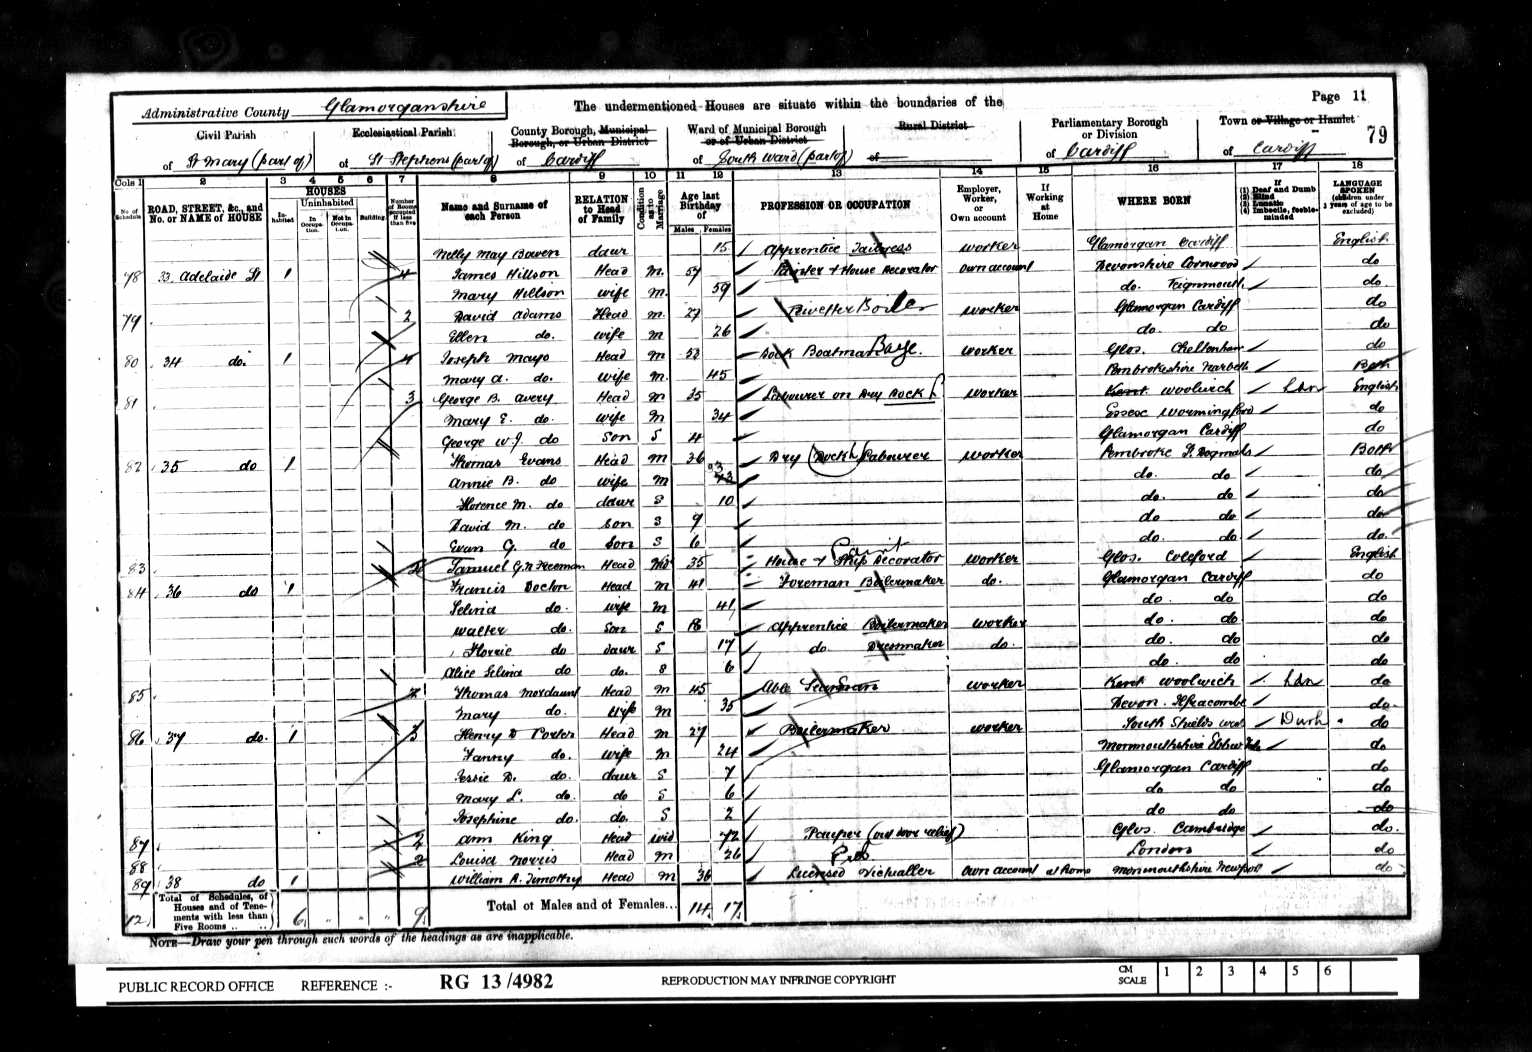 Administrative County Glamorganshire
The undermentioned Houses are situate within the boundaries of the
Page 11
79
Civil Parish
of St Mary (part of)
Ecclesiastical Parish
of St Stephens (part of)
County Borough, Municipal Borough, or Urban District
of Cardiff
Ward of Municipal Borough or of Urban District
of South Ward (part of)
Rural District
of
Parliamentary Borough or Division
of Cardiff
Town or Village or Hamlet
of Cardiff
Cols 1 2 3 4 5 6 7 8 9 10 11 12 13 14 15 16 17 18
No. of Schedule
ROAD, STREET, &c., and No. or NAME of HOUSE
HOUSES
Inhabited
Uninhabited
In Occupation.
Not in Occupation.
Building
Number of Rooms occupied if less than five
Name and Surname of each Person
RELATION to Head of Family
Condition as to Marriage
Age last Birthday of
Males Females
PROFESSION OR OCCUPATION
Employer, Worker, or Own account
If Working at Home
WHERE BORN
If (1) Deaf and Dumb (2) Blind (3) Lunatic (4) Imbecile, feeble-minded
LANGUAGE SPOKEN (children under 3 years of age to be excluded)
Nelly May Bowen daur 15 Apprentice Tailoress worker Glamorgan Cardiff English
78 33 Adelaide St 1 4 James Hillson Head M. 57 Painter & House Decorator own account Devonshire Cornwood do
Mary Hillson wife M. 59 do. Teignmouth do.
79 2 David Adams Head m. 27 Rivetter Boiler worker Glamorgan Cardiff do
Ellen do. wife m 26 do. do do
80 34 do. 1 4 Joseph Mayo Head m 52 Dock Boatman Barge. worker Glos. Cheltenham do
Mary A. do. wife M. 45 Pembrokeshire Narbeth Both
81 3 George B. Avery Head m 35 Labourer on Dry Dock worker Kent Woolwich Ldn English
Mary E. do. wife M 34 Essex Wormingford do
George W.J. do Son S 4 Glamorgan Cardiff do
82 35 do 1 Thomas Evans Head M 36 Dry Dock Labourer worker Pembroke St. Dogmals Both
Annie B. do wife M 33 do. do. do
Florence M. do daur S 10 do. do do
David M. do Son S 9 do do do
Evan G. do Son S 6 do. do. do.
83 Samuel G.N. Freeman Head Wdr 35 House & Ship Decorator Paint worker Glos. Coleford English
84 36 do 1 Francis Docton Head M 41 Foreman Boilermaker do. Glamorgan Cardiff do
Selina do. wife M 41 do. do. do
Walter do. Son S 18 Apprentice Boilermaker worker do. do do
Florrie do daur S 17 do Dressmaker do. do. do. do
Alice Selina do do. S 6 do. do do
85 2 Thomas Mordaunt Head M 45 Able Seaman worker Kent Woolwich Ldn do
Mary do. wife M 35 Devon. Ilfracombe do
86 37 do. 1 3 Henry D Porter Head M 27 Boilermaker worker South Shields Durh do
Fanny do. wife M 24 Monmouthshire Ebbw Vale do
Jessie D. do. daur S 7 Glamorgan Cardiff do
Mary L. do. do S 6 do do do
Josephine do. do. S 2 do do do
87 2 Ann King Head wid 72 Pauper (out door relief) Glos. Cambridge do.
88 2 Louisa Norris Head M 26 London do
89 38 do 1 William A. Timothy Head M 36 Licensed Victualler Pub own account at Home Monmouthshire Newport do
12 Total of Schedules, of Houses and of Tenements with less than Five Rooms .. .. 6 " " " 9
Total of Males and of Females... 14 17
NOTE—Draw your pen through such words of the headings as are inapplicable.
PUBLIC RECORD OFFICE REFERENCE :- RG 13 /4982 REPRODUCTION MAY INFRINGE COPYRIGHT CM SCALE 1 2 3 4 5 6